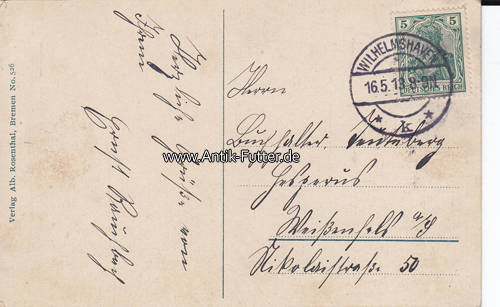 Verlag Alb. Rosenthal, Bremen No. 526
Herzliche Grüße von
Ihrem
Ernst
5 5
DEUTSCHES REICH
WILHELMSHAVEN
16.5.13.8-9N.
* k *
Herrn
Buchhalter
Hesperus
Weißenfels a/S
Nikolaistraße 50
www.Antik-Futter.de